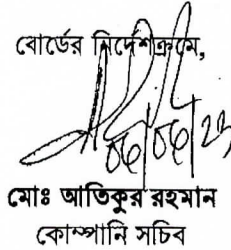 বোর্ডের নির্দেশক্রমে,
মোঃ আতিকুর রহমান
কোম্পানি সচিব